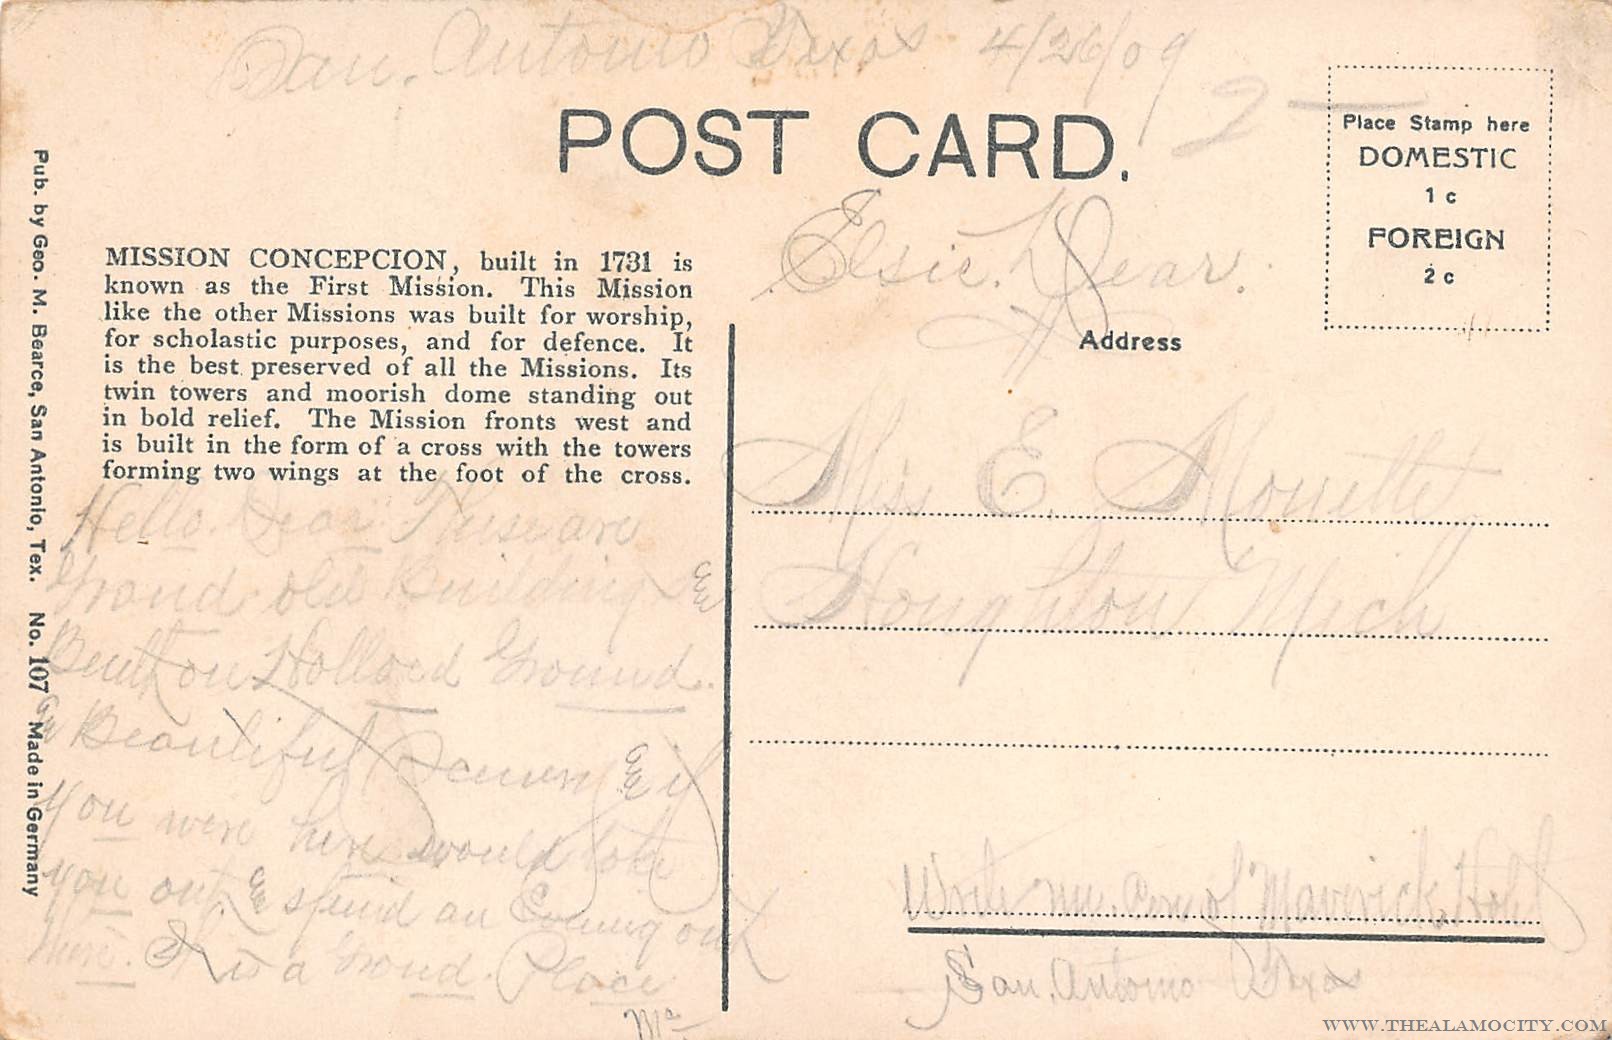 San. Antonio Texas 4/26/09
2
POST CARD.
Place Stamp here
DOMESTIC
1 c
FOREIGN
2 c
Pub. by Geo. M. Bearce, San Antonio, Tex. No. 107 Made in Germany
MISSION CONCEPCION, built in 1731 is
known as the First Mission. This Mission
like the other Missions was built for worship,
for scholastic purposes, and for defence. It
is the best preserved of all the Missions. Its
twin towers and moorish dome standing out
in bold relief. The Mission fronts west and
is built in the form of a cross with the towers
forming two wings at the foot of the cross.
Hello. Dear These are
Grand old Buildings &
Built on Hollowed Ground.
Beautiful & if
you were here would take
you out & spend an Evening out
here. It is a Grand Place
Mc
Elsie. Dear.
Address
Miss E. Mouette
Houghton Mich
Write me. Care of Maverick, Hotel
San. Antonio Texas
WWW.THEALAMOCITY.COM